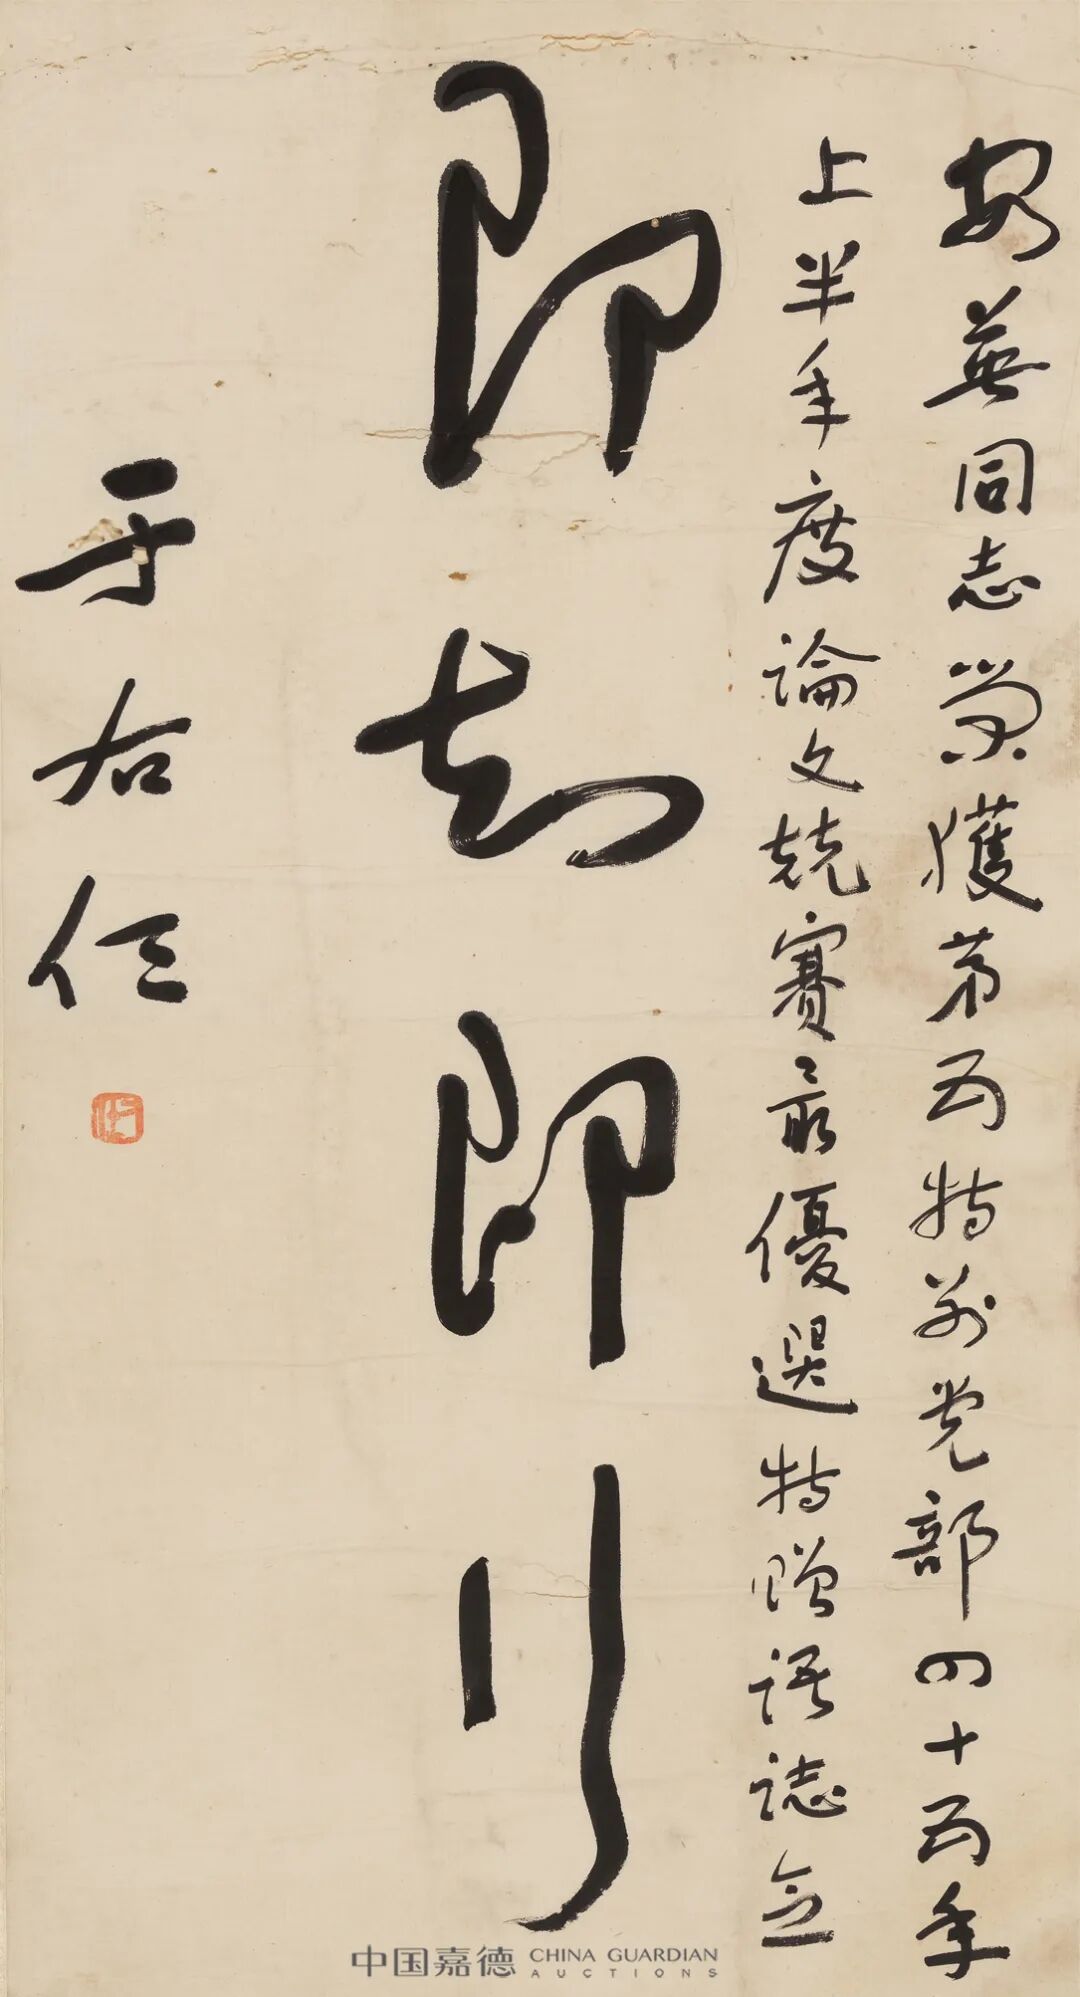 同志榮獲第五特別党部四十五年
上半年度論文競賽最優選特贈語誌念
即知即行
于右任
中国嘉德 CHINA GUARDIAN
AUCTIONS